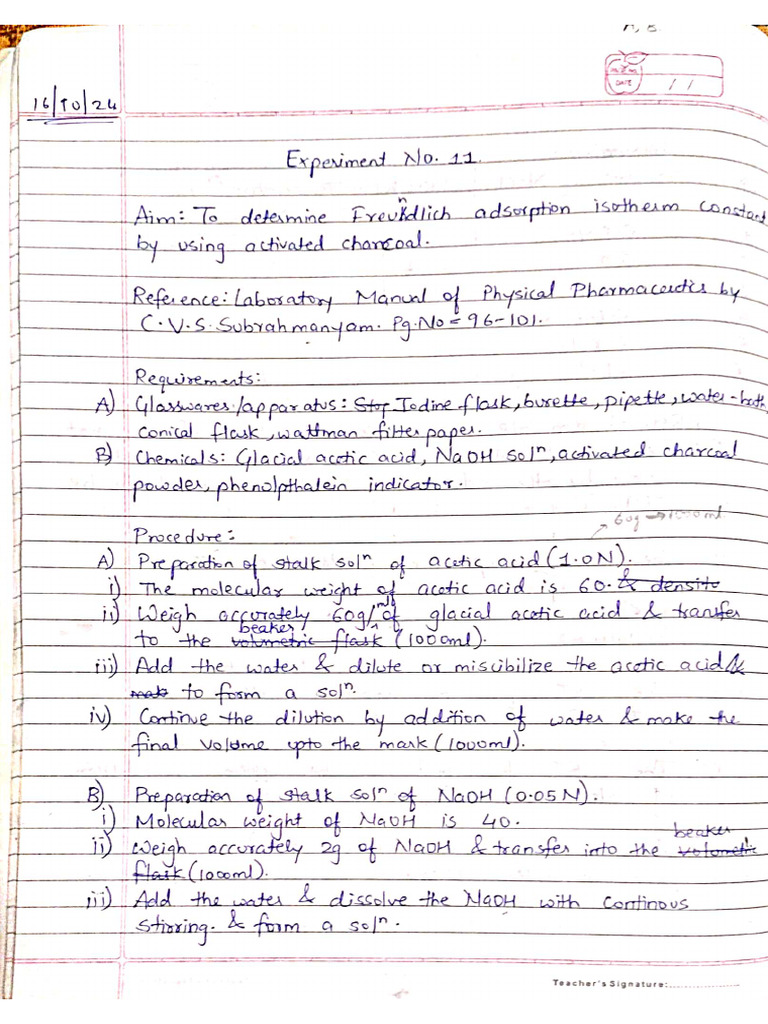 16/10/24
DATE / /
Experiment No. 11.
Aim: To determine Freundlich adsorption isotherm constant
by using activated charcoal.
Reference: Laboratory Manual of Physical Pharmaceutics by
C.V.S. Subrahmanyam. Pg. No = 96-101.
Requirements:
A) Glasswares/apparatus: Stop Iodine flask, burette, pipette, water-bath,
conical flask, wattman filter paper.
B) Chemicals: Glacial acetic acid, NaOH solⁿ, activated charcoal
powder, phenolpthalein indicator.
60g → 1000ml
Procedure:
A) Preparation of stalk solⁿ of acetic acid (1.0N).
i) The molecular weight of acetic acid is 60. & density
ii) Weigh accurately 60g/ml of glacial acetic acid & transfer
to the volumetric flask beaker (1000ml).
iii) Add the water & dilute or miscibilize the acetic acid &
make to form a solⁿ.
iv) Continue the dilution by addition of water & make the
final volume upto the mark (1000ml).
B) Preparation of stalk solⁿ of NaOH (0.05N).
i) Molecular weight of NaOH is 40.
ii) Weigh accurately 2g of NaOH & transfer into the volumetric beaker
flask (1000ml).
iii) Add the water & dissolve the NaOH with continous
stirring. & form a solⁿ.
Teacher's Signature: